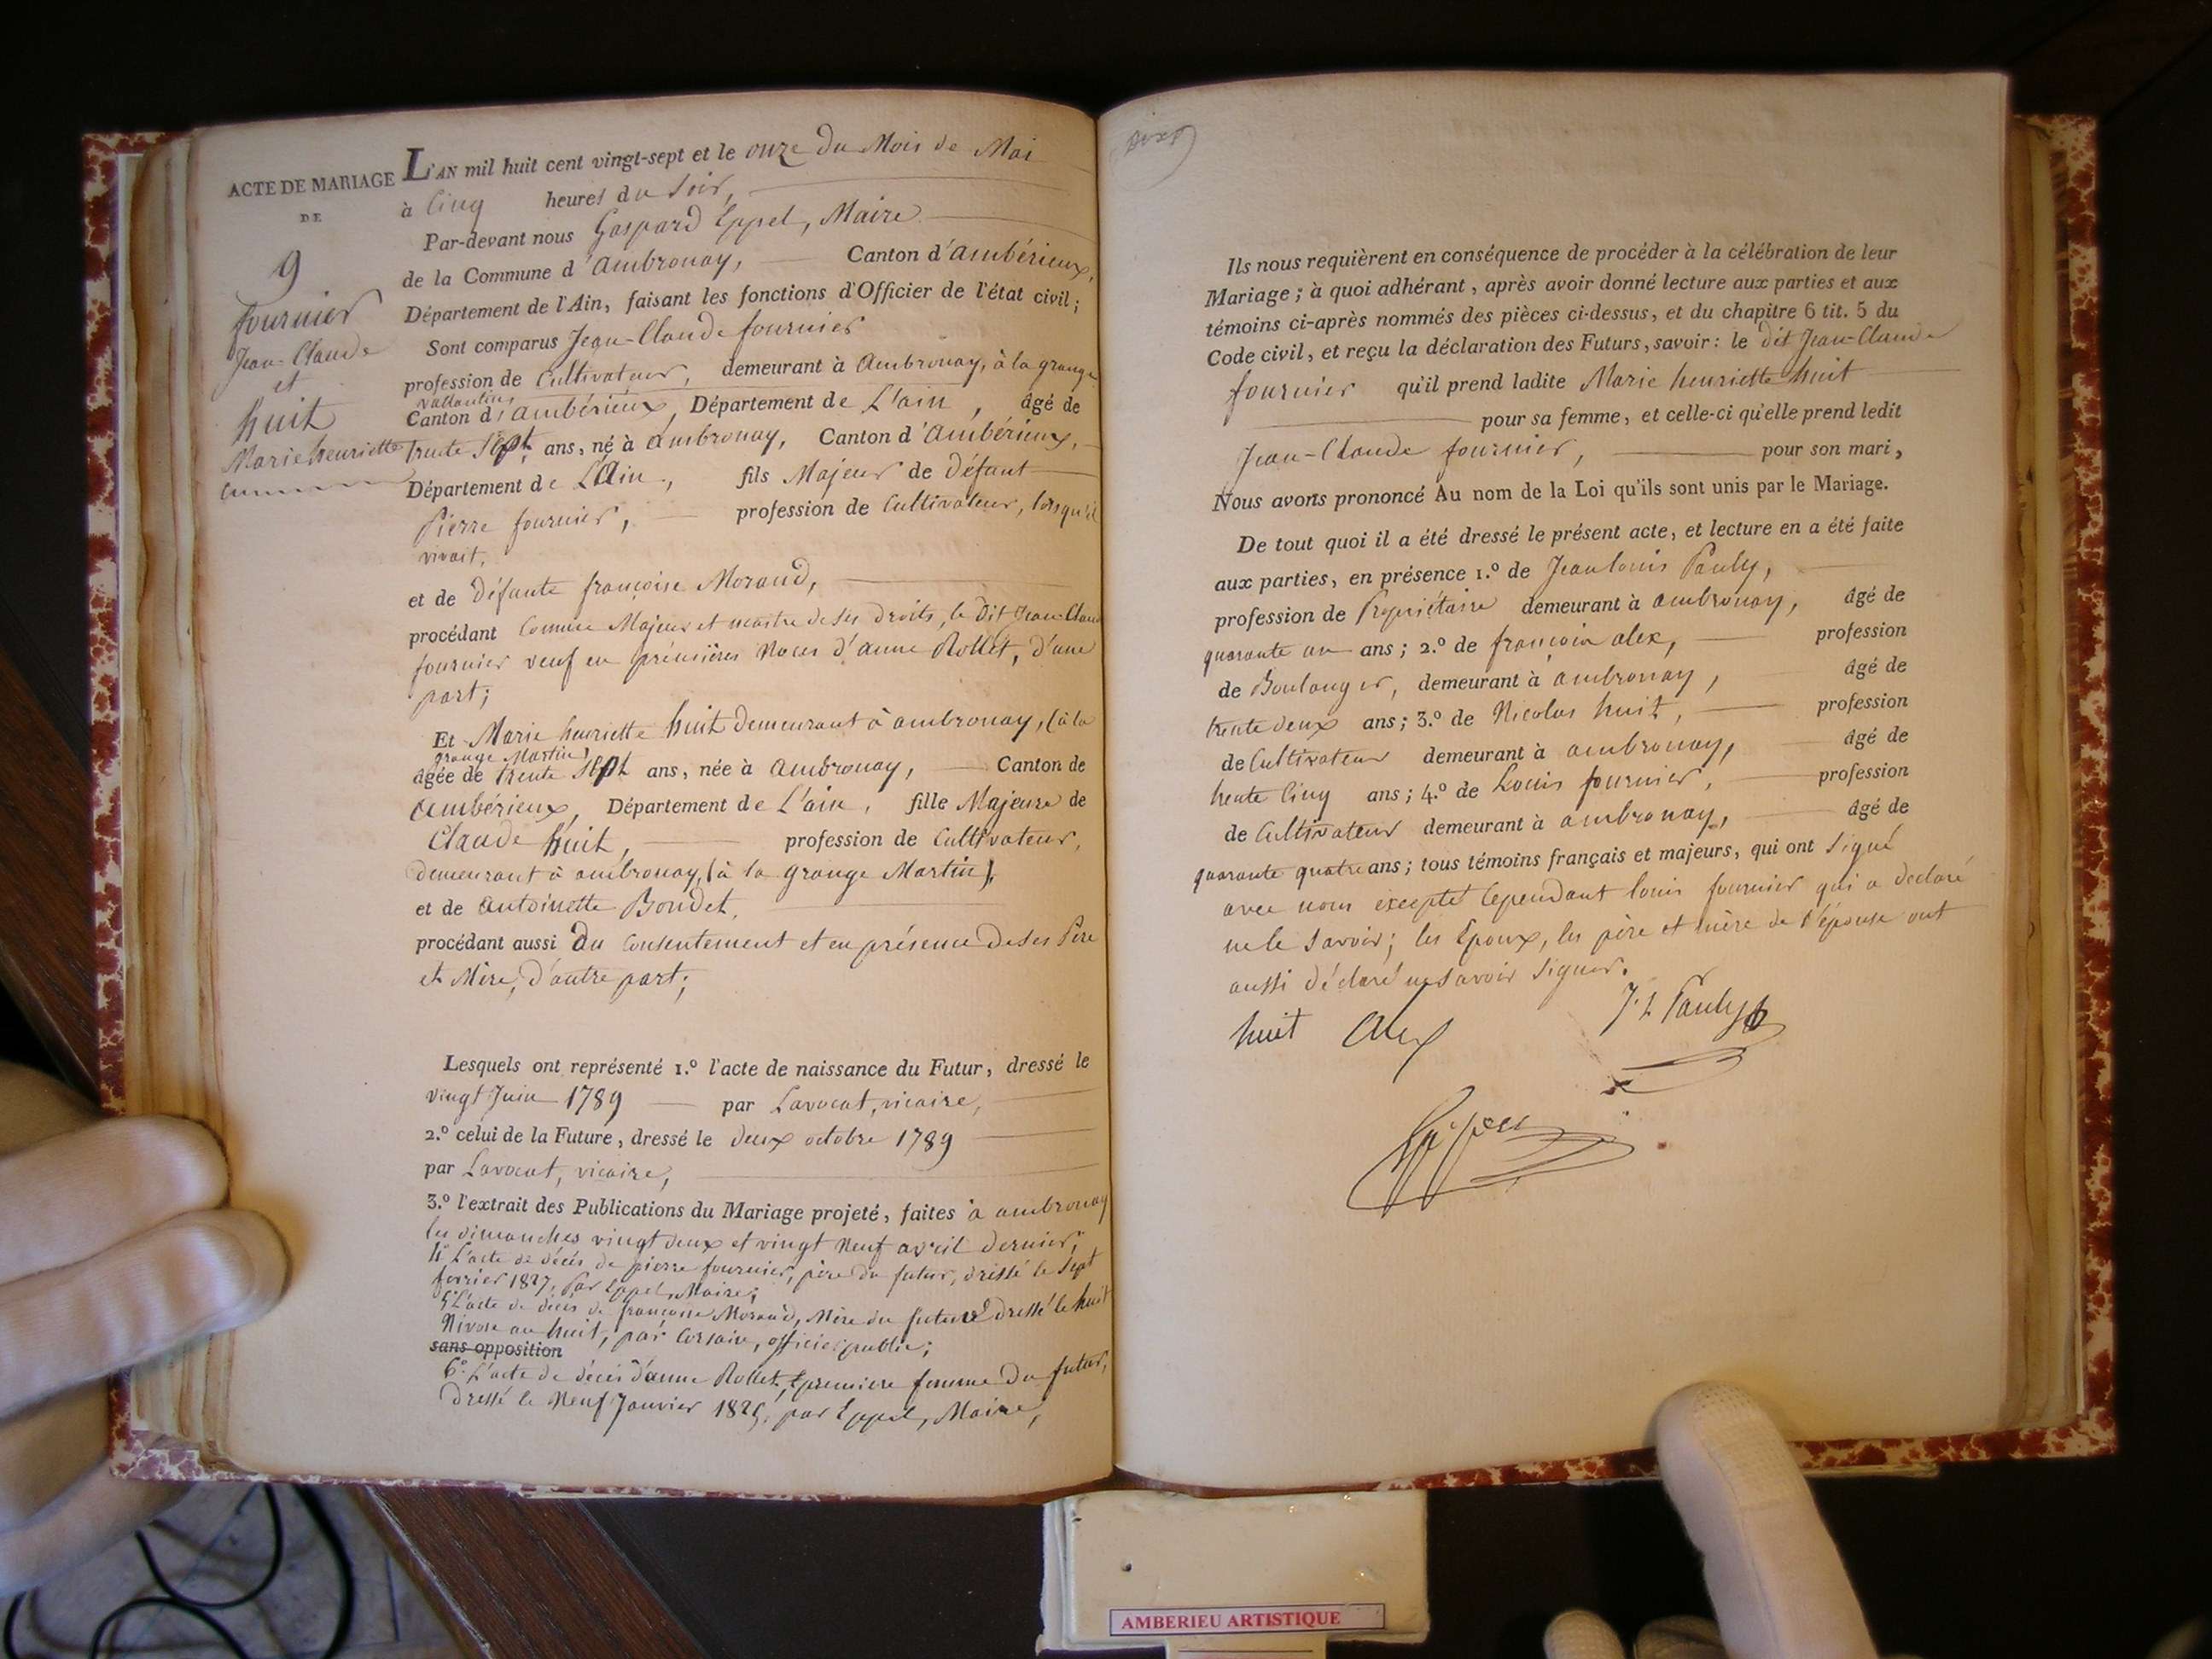 ACTE DE MARIAGE
DE
9
fournier
Jean-Claude
et
huit
Marie henriette
L'AN mil huit cent vingt-sept et le onze du Mois de Mai
à Cinq heures du Soir,
Par-devant nous Gaspard Eppel, Maire
de la Commune d'ambronay, Canton d'ambérieux,
Département de l'Ain, faisant les fonctions d'Officier de l'état civil;
Sont comparus Jean-Claude fournier
profession de Cultivateur, demeurant à Ambronay, à la grange
vallantin
Canton d'ambérieux, Département de L'ain, âgé de
trente Sept ans, né à ambronay, Canton d'Ambérieux,
Département de L'Ain, fils Majeur de défunt
Pierre fournier, profession de Cultivateur, lorsqu'il
vivait,
et de défunte françoise Moraud,
procédant Comme Majeur et maitre de ses droits, le dit Jean-Claude
fournier veuf en premières Noces d'anne Rollet, d'une
part;
Et Marie henriette huit demeurant à ambronay, (à la
grange Martin)
âgée de trente Sept ans, née à ambronay, Canton de
ambérieux, Département de L'ain, fille Majeure de
Claude huit, profession de Cultivateur,
demeurant à ambronay, (à la grange Martin),
et de Antoinette Boudet,
procédant aussi du Consentement et en présence de ses Père
et Mère, d'autre part;
Lesquels ont représenté 1.º l'acte de naissance du Futur, dressé le
vingt Juin 1789 par Lavocat, vicaire,
2.º celui de la Future, dressé le deux octobre 1789
par Lavocat, vicaire,
3.º l'extrait des Publications du Mariage projeté, faites à ambronay
les dimanches vingt deux et vingt Neuf avril dernier,
4º L'acte de décès de pierre fournier, père du futur, dressé le Sept
février 1827, par Eppel, Maire;
5º L'acte de décès de françoise Moraud, Mère du futur dressé le huit
Nivose an huit, par Corsain, officier public;
sans opposition
6º L'acte de décès d'anne Rollet, première femme du futur,
dressé le Neuf Janvier 1825, par Eppel, Maire,
Ils nous requièrent en conséquence de procéder à la célébration de leur
Mariage; à quoi adhérant, après avoir donné lecture aux parties et aux
témoins ci-après nommés des pièces ci-dessus, et du chapitre 6 tit. 5 du
Code civil, et reçu la déclaration des Futurs, savoir: le dit Jean-Claude
fournier qu'il prend ladite Marie henriette huit
pour sa femme, et celle-ci qu'elle prend ledit
Jean-Claude fournier, pour son mari,
Nous avons prononcé Au nom de la Loi qu'ils sont unis par le Mariage.
De tout quoi il a été dressé le présent acte, et lecture en a été faite
aux parties, en présence 1.º de Jean louis Pauly,
profession de Propriétaire demeurant à ambronay, âgé de
quarante un ans; 2.º de françois alex, profession
de Boulanger, demeurant à ambronay, âgé de
trente deux ans; 3.º de Nicolas huit, profession
de Cultivateur demeurant à ambronay, âgé de
trente Cinq ans; 4.º de Louis fournier, profession
de Cultivateur demeurant à ambronay, âgé de
quarante quatre ans; tous témoins français et majeurs, qui ont Signé
avec nous excepté Cependant louis fournier qui a déclaré
ne le Savoir; les Epoux, les père et mère de l'épouse ont
aussi déclaré ne savoir Signer.
huit Alex J. L Pauly
Eppel
AMBERIEU ARTISTIQUE